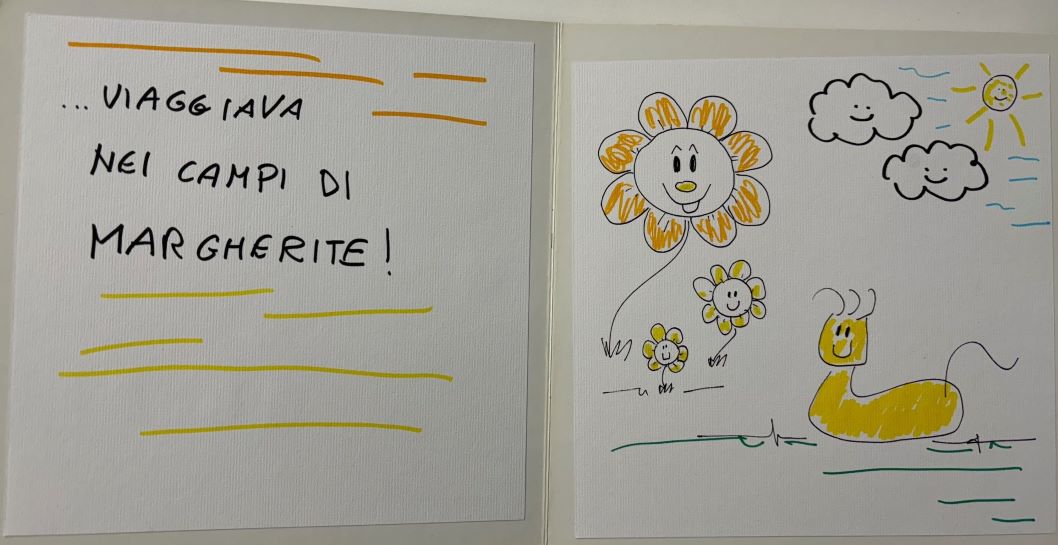 ...VIAGGIAVA
NEI CAMPI DI
MARGHERITE!